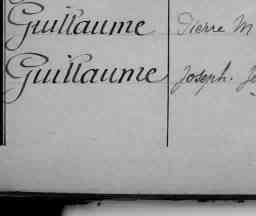 Guillaume Pierre M
Guillaume Joseph. Je